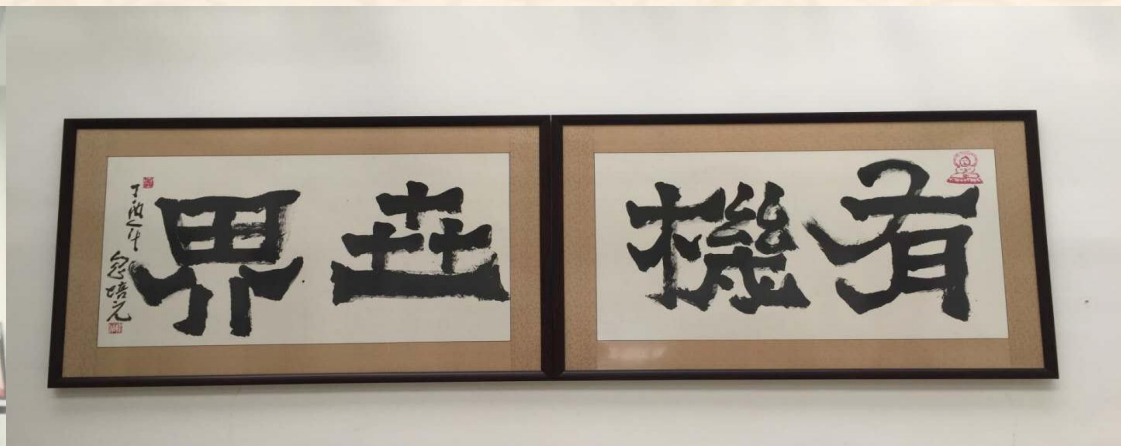 有機世界
丁酉
忽培元